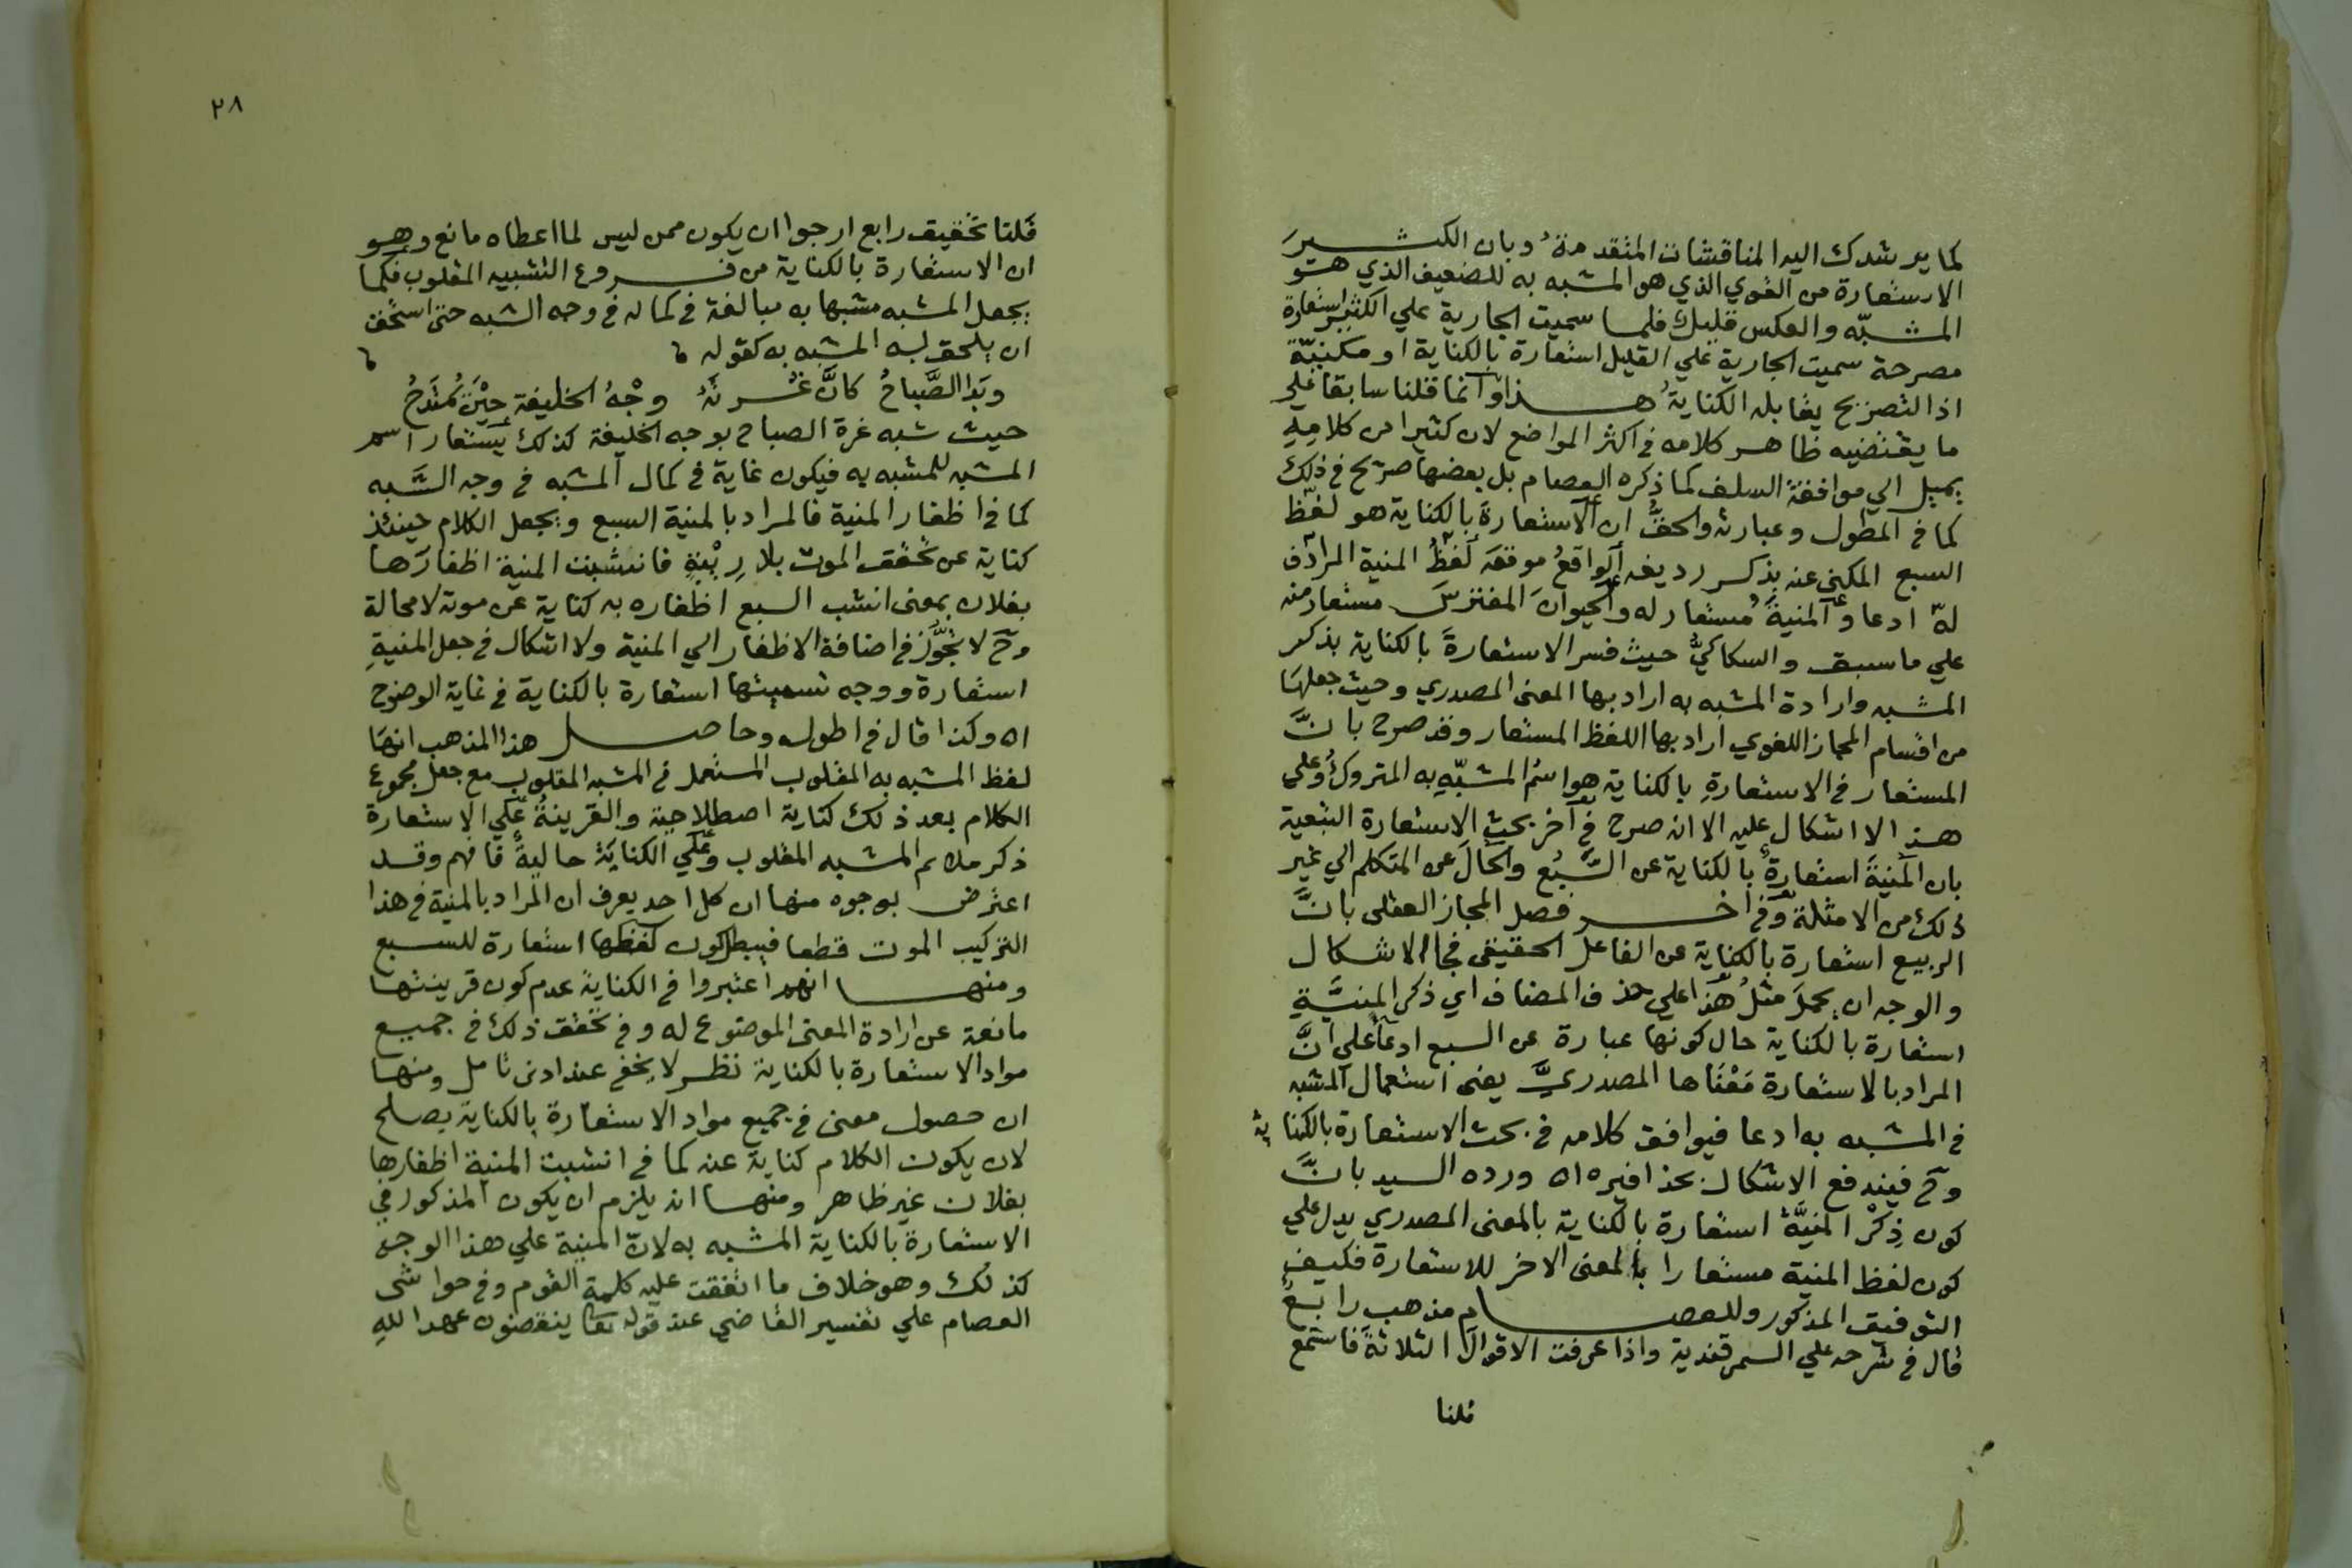 كما يرشدك اليه المناقشات المتقدمة وبان الكثير
الاستعارة من القوي الذي هو المشبه به للضعيف الذي هو
المشبّه والعكس قليل فلما سميت الجارية علي الكثير استعارة
مصرحة سميت الجارية علي القليل استعارة بالكناية او مكنيّة
اذ التصريح يقابله الكناية هذا وانما قلنا سابقا علي
ما يقتضيه ظاهر كلامه في اكثر المواضع لان كثيرا من كلامه
يميل الي موافقة السلف كما ذكره العصام بل بعضها صريح في ذلك
كما في المطول وعبارته والحقُّ ان الاستعارةَ بالكناية هو لفظ
السبع المكني عنه بذكر رديفه الواقعُ موقعَه لفظُ المنية المرادف
لهّ ادعا والمنيةُ مُستعار له والحيوانَ المفترسَ مستعار منه
علي ما سبق والسكاكيُّ حيث فسر الاستعارةَ بالكناية بذكر
المشبه وارادة المشبه به اراد بها المعنى المصدري وحيث جعلها
من اقسام المجاز اللغوي اراد بها اللفظ المستعار وقد صرح بانَّ
المستعار في الاستعارةِ بالكناية هو اسمُ المشبّهِ به المتروكُ وعلي
هذا لا اشكال عليه الا انه صرح في آخر بحث الاستعارة التبعية
بان المنيةَ استعارةٌ بالكناية عن السَّبُع والحالَ عن المتكلم الي غير
ذلك من الامثلة وفي اخر فصل المجاز العقلى بانَّ
الربيع استعارة بالكناية عن الفاعل الحقيقى فجا الاشكال
والوجه ان يحملَ مثلُ هذا علي حذف المضاف اي ذكر المنيَّةِ
استعارة بالكناية حال كونها عبارة عن السبع ادعاً علي انَّ
المراد بالاستعارةِ مَعْنَاها المصدريَّ يعنى استعمال المشبه
في المشبه به ادعا فيوافق كلامه في بحث الاستعارة بالكناية
وح فيندفع الاشكال بحذافيره اه ورده السيد بانَّ
كون ذِكْر المنيَّة استعارة بالكناية بالمعنى المصدري يدل علي
كون لفظ المنية مستعارا بالمعنى الاخر للاستعارة فكيف
التوفيق المذكور وللعصام مذهب رابعٌ
قال في شرحه علي السمرقندية واذا عرفت الاقوالَ الثلاثةَ فاستمع
قلنا
٢٨
قلنا تحقيق رابع ارجوا ان يكون ممن ليس لما اعطاه مانع وهو
ان الاستعارة بالكناية من فروع التشبيه المقلوب فكما
يجعل المشبه مشبها به مبالغة في كماله في وجه الشبه حتى استحق
ان يلحق به المشبه به كقوله
وبَدا الصَّباحُ كانَّ غُرتَهُ وجْهُ الخليفة حِيْنَ يُمْتَدَحُ
حيث شبه غرة الصباح بوجه الخليفة كذلك يستعار اسم
المشبه للمشبه به فيكون غاية في كمال المشبه في وجه الشَّبه
كما في اظفار المنية فالمراد بالمنية السبع ويجعل الكلام حينئذ
كناية عن تحقق الموت بلا رِيْبَةٍ فانشبت المنية اظفارَها
بفلان بمعنى انشب السبع اظفاره به كناية عن موته لا محالة
وح لا تجَوُّزَ في اضافة الاظفار الي المنية ولا اشكال في جعل المنيةِ
استعارة ووجه تسميتها استعارة بالكناية في غاية الوضوح
اه وكذا قال في اطوله وحاصل هذا المذهب انها
لفظ المشبه به المقلوب المستعمل في المشبه المقلوب مع جعل مجموع
الكلام بعد ذلك كناية اصطلاحية والقرينةُ علي الاستعارة
ذكر ملائم المشبه المقلوب وعلي الكناية حاليةٌ فافهم وقد
اعترض بوجوه منها ان كل احد يعرف ان المراد بالمنية في هذا
التركيب الموت قطعا فيبطل كون لفظها استعارة للسبع
ومنها انهم اعتبروا في الكناية عدم كون قرينتها
مانعة عن ارادة المعنى الموضوع له وفي تحقق ذلك في جميع
مواد الاستعارة بالكناية نظر لا يخفى عند ادنى تامل ومنها
ان حصول معنى في جميع مواد الاستعارة بالكناية يصلح
لان يكون الكلام كناية عنه كما في انشبت المنية اظفارها
بفلان غير ظاهر ومنها انه يلزم ان يكون المذكور في
الاستعارة بالكناية المشبه به لان المنية علي هذا الوجه
كذلك وهو خلاف ما اتفقت عليه كلمة القوم وفي حواشى
العصام علي تفسير القاضي عند قوله تعا ينقضون عهد اللهِ